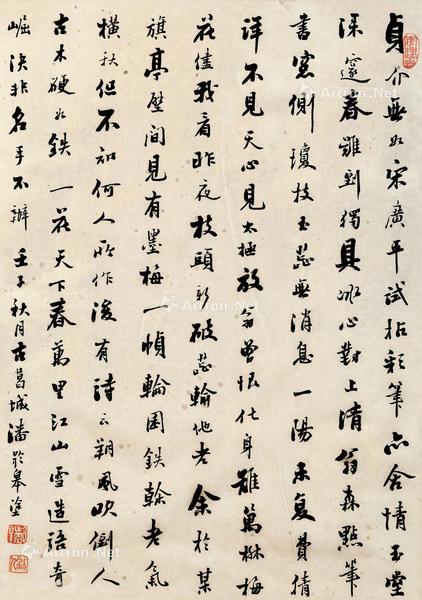 貞介無如宋廣平試拈彩筆亦含情玉堂
深邃春難到獨具冰心對上清翁森點筆
書窓側瓊枝玉蕊無消息一陽來復費猜
詳不見天心見太極放翁曾恨化身難萬樹梅
花儘我看昨夜枝頭新破蕊輸他老余於某
旗亭壁間見有墨梅一幀輪囷鉄榦老氣
橫秋但不知何人所作後有詩云朔風吹倒人
古木硬如鉄一花天下春萬里江山雪造語奇
崛決非名手不辦壬子秋月古葛城潘齡皋塗
Artron.Net